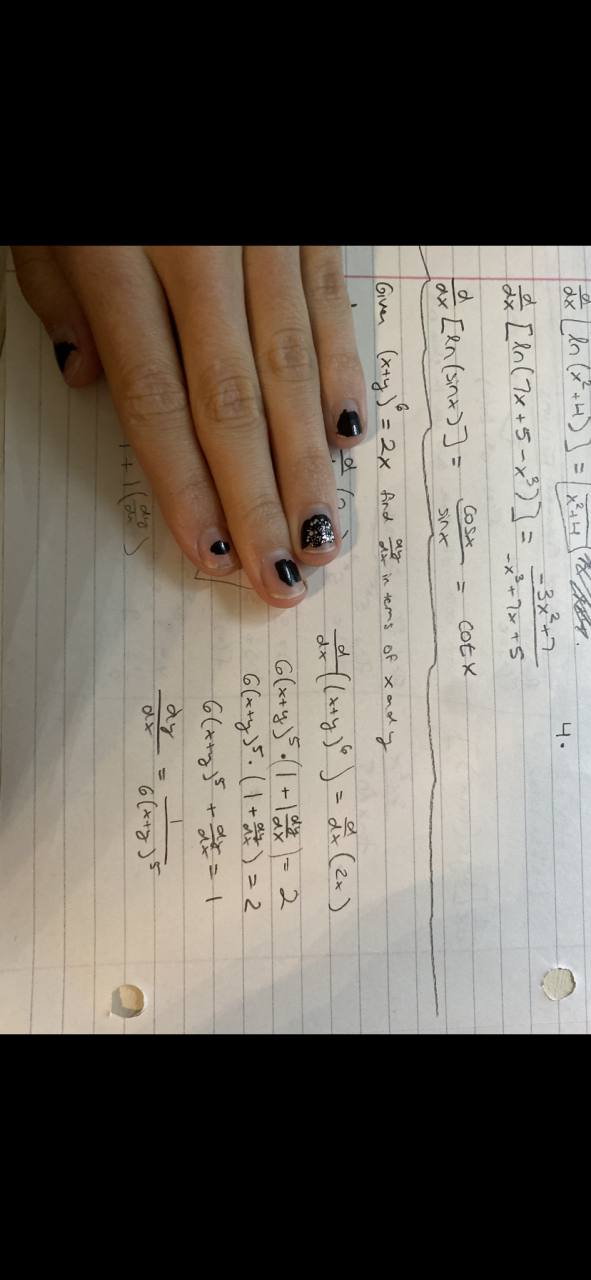 d/dx [ln(x²+4)] = x²+4
4.
d/dx [ln(7x+5-x³)] = (-3x²+7)/(-x³+7x+5)
d/dx [ln(sinx)] = cosx/sinx = cotx
Given (x+y)⁶ = 2x find dy/dx in terms of x and y
d/dx((x+y)⁶) = d/dx(2x)
6(x+y)⁵·(1+1dy/dx) = 2
6(x+y)⁵·(1+dy/dx) = 2
6(x+y)⁵ + dy/dx = 1
dy/dx = 1/6(x+y)⁵
1+1(dy/dx)